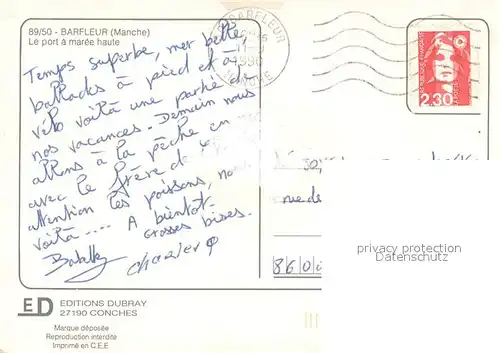 89/50 - BARFLEUR (Manche)
Le port à marée haute
BARFLEUR
1990
MANCHE
2.30
Temps superbe, mer belle,
ballades à pied et à
vélo voilà une partie de
nos vacances. Demain nous
allons à la pêche en mer
avec le frère de
attention les poissons, nous
voilà .... A bientôt.
Grosses bises.
rue de
860
privacy protection
Datenschutz
ED EDITIONS DUBRAY
27190 CONCHES
Marque déposée
Reproduction interdite
Imprimé en C.E.E